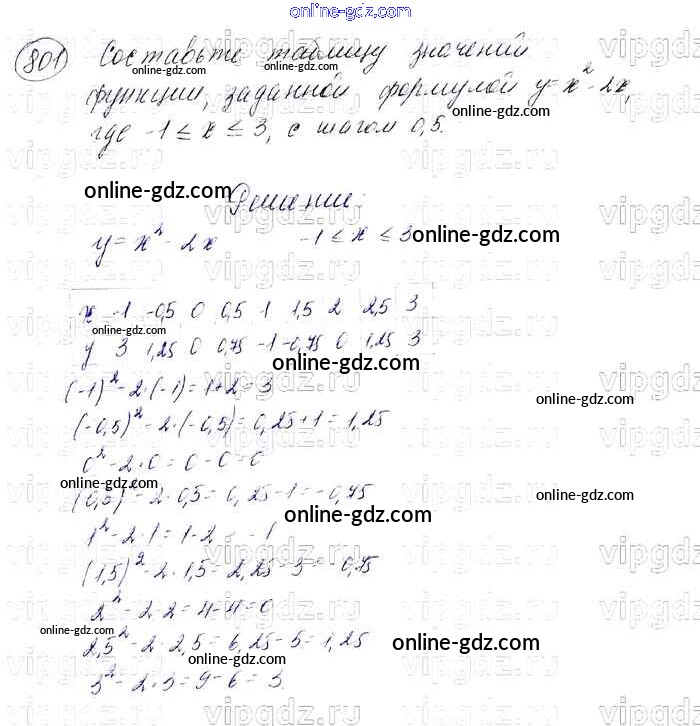 online-gdz.com
801 Составьте таблицу значений
online-gdz.com online-gdz.com
функции, заданной формулой y=x²-2x,
online-gdz.com
где -1 ≤ x ≤ 3, с шагом 0,5.
online-gdz.com
Решение:
y = x² - 2x -1 ≤ x ≤ 3
online-gdz.com
x -1 -0,5 0 0,5 1 1,5 2 2,5 3
online-gdz.com
y 3 1,25 0 0,75 -1 -0,75 0 1,25 3
online-gdz.com
(-1)² - 2·(-1) = 1+2 = 3
online-gdz.com
(-0,5)² - 2·(-0,5) = 0,25+1 = 1,25
0² - 2·0 = 0-0=0
online-gdz.com
(0,5)² - 2·0,5 = 0,25-1=-0,75
online-gdz.com
online-gdz.com
1² - 2·1 = 1-2 = -1
(1,5)² - 2·1,5 = 2,25-3 = -0,75
2² - 2·2 = 4-4=0
online-gdz.com
2,5² - 2·2,5 = 6,25-5=1,25
online-gdz.com
online-gdz.com
3² - 2·3 = 9-6 = 3
vipgdz.ru